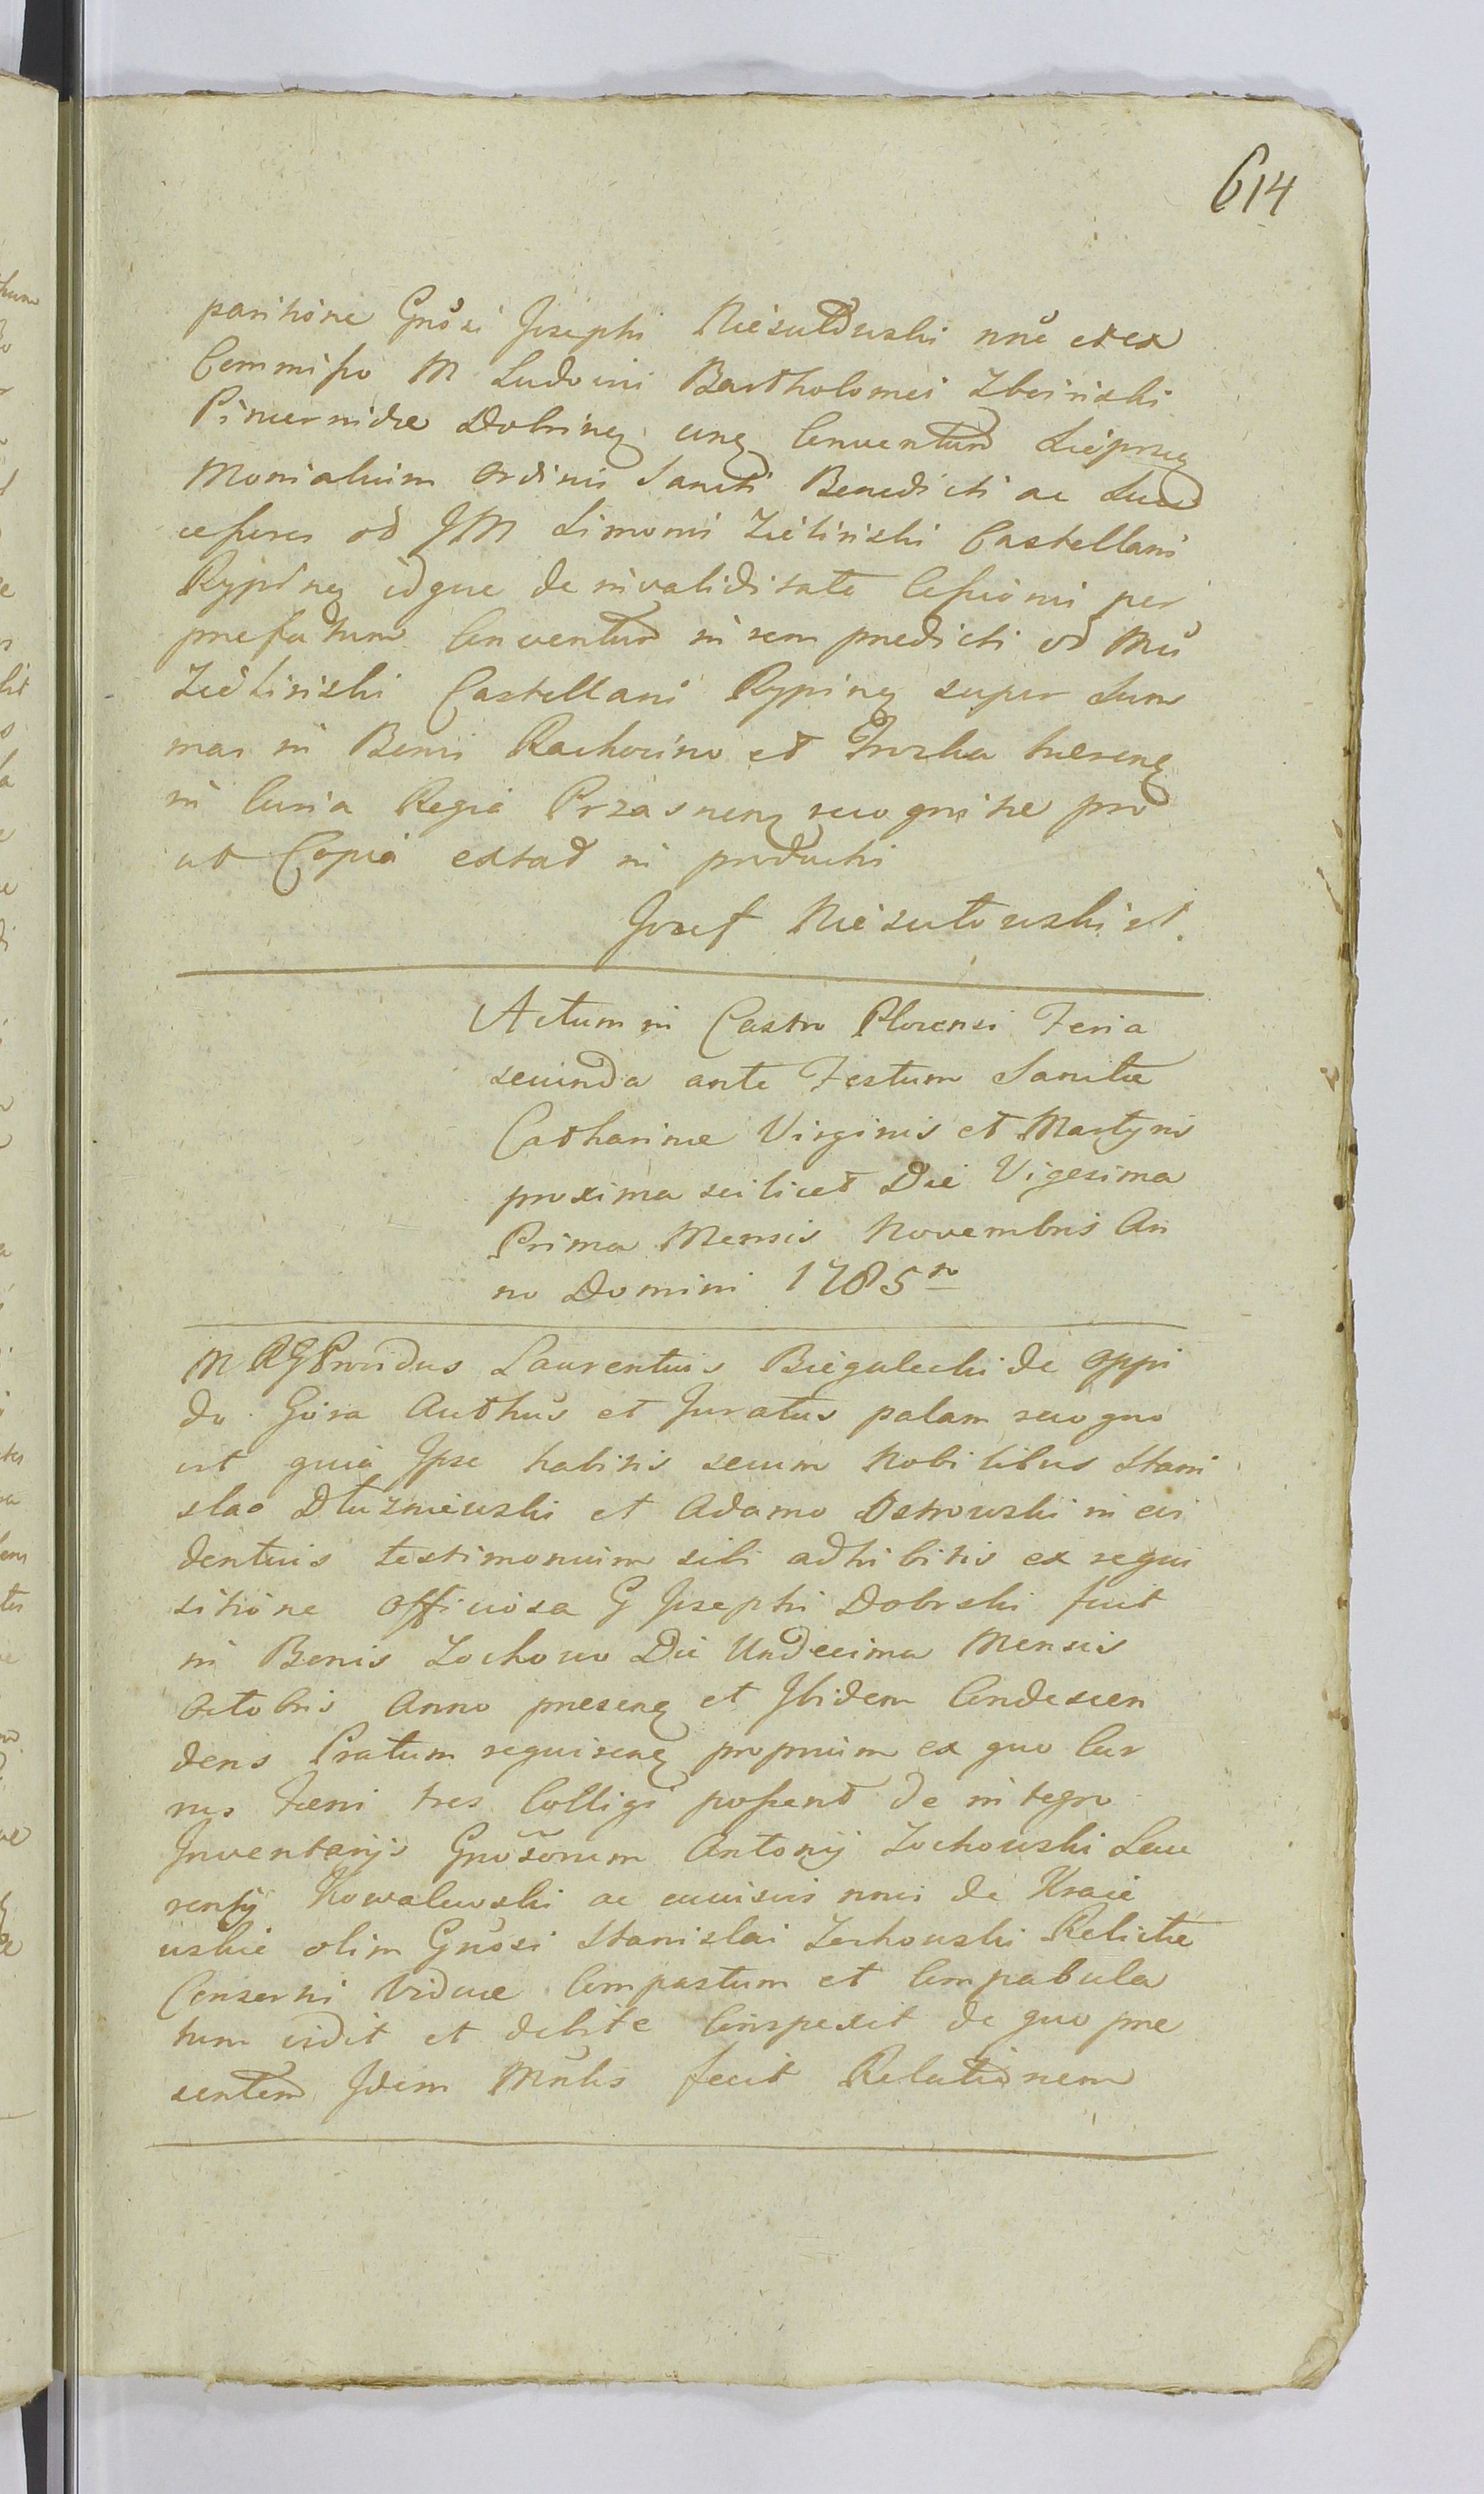 614
paritione Gnosi Josephi Niesułowski nne et ex
Commisso M Ludovici Bartholomei Zboiński
Pincernidæ Dobrinen cum Conventum Sieprcen
Monialium Ordinis Sancti Benedicti ac Suc
cessores ad JM Simonis Zieliński Castellani
Rypinen idque de invaliditate Cessionis per
prefatum Conventum in rem predicti ad Mci
Zieliński Castellani Rypinen super Sum
mas in Bonis Rachocino et Troska hærenen
in Curia Regia Przasnen recognitæ pro
ut Copia extat in productis
Jozef Niesułowski
Actum in Castro Plocensi Feria
secunda ante Festum Sanctæ
Catharinæ Virginis et Martyris
proxima scilicet Die Vigesima
Prima Mensis Novembris An
no Domini 1785to
M RG Providus Laurentius Biegalecki de Oppi
do Gora Authus et Juratus palam recogno
vit quia Ipse habitis secum Nobilibus Stani
slao Dłuzniewski et Adamo Ostrowski in evi
dentius testimonium sibi adhibitis ex requi
sitione Officiosa G Josephi Dobrski fuit
in Bonis Zochowo Die Undecima Mensis
Octobris Anno presenen et Ibidem Condescen
dens Pratum requirenen proprium ex quo Cur
rus fæni tres Colligi possent de integro
Inventarijs Gnosorum Antonij Zochowski Lau
rentij Kowalewski ac cuiusvis nnis de Kraie
wskie olim Gnosi Stanislai Zochowski Relictæ
Conserti Viduæ Compastum et Compabula
tum vidit et debite Conspexit de quo præ
sentem Idem Mnlis fecit Relationem